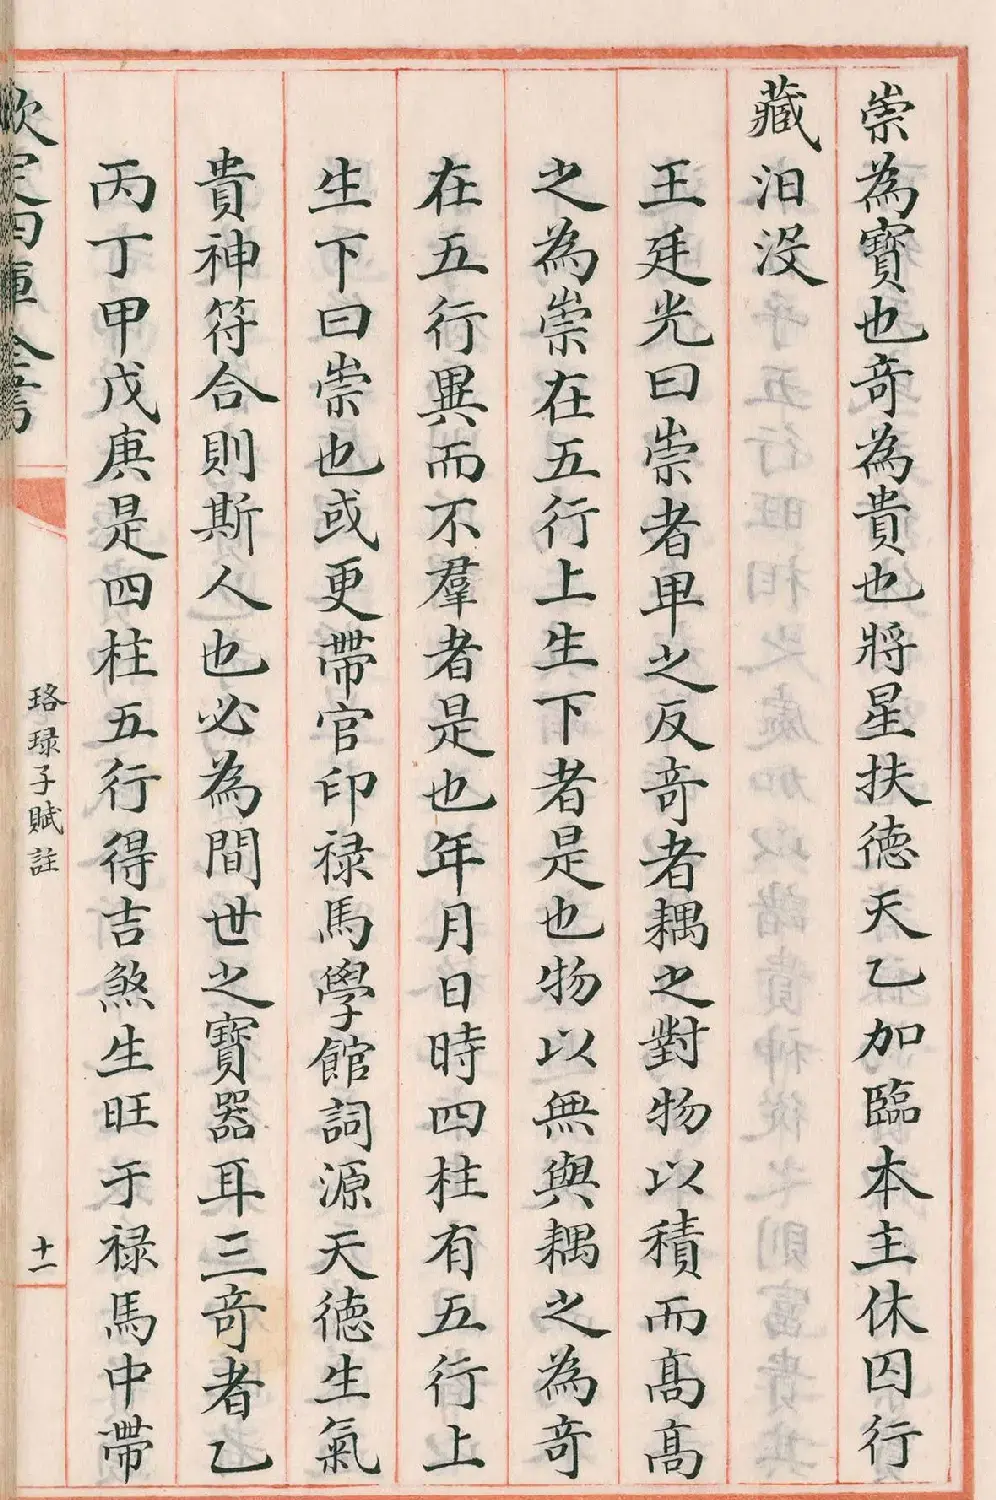 崇為寳也竒為貴也將星扶德天乙加臨本主休囚行
藏汨没
王廷光曰崇者卑之反竒者耦之對物以積而髙髙
之為崇在五行上生下者是也物以無與耦之為竒
在五行異而不羣者是也年月日時四柱有五行上
生下曰崇也或更帶官印禄馬學館詞源天德生氣
貴神符合則斯人也必為間世之寳器耳三竒者乙
丙丁甲戊庚是四柱五行得吉煞生旺于禄馬中帶
欽定四庫全書
珞琭子賦註
十一